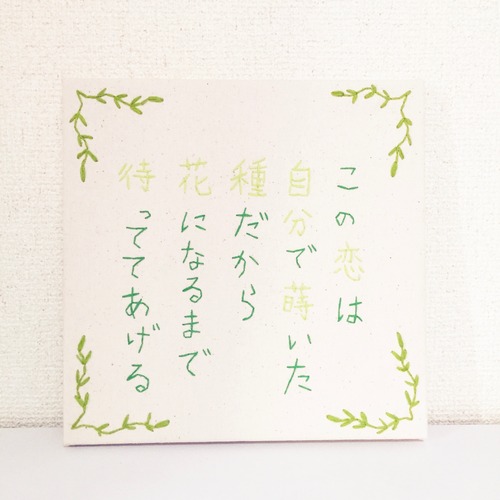 この恋は
自分で蒔いた
種だから
花になるまで
待っててあげる